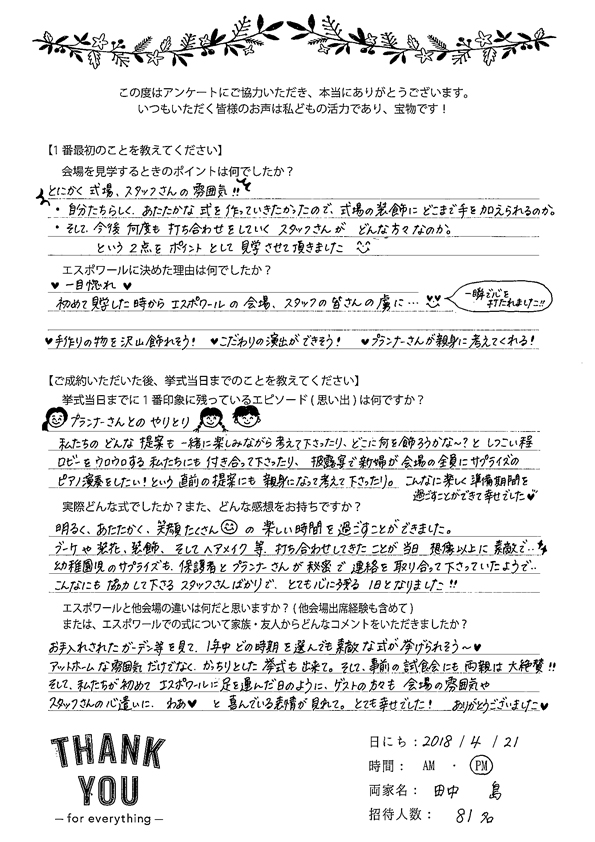 この度はアンケートにご協力いただき、本当にありがとうございます。
いつもいただく皆様のお声は私どもの活力であり、宝物です！
【1番最初のことを教えてください】
会場を見学するときのポイントは何でしたか？
とにかく式場、スタッフさんの雰囲気!!
・自分たちらしく、あたたかな式を作っていきたかったので、式場の装飾にどこまで手を加えられるのか。
・そして今後何度も打ち合わせをしていくスタッフさんがどんな方々なのか。
という2点をポイントとして見学させて頂きました
エスポワールに決めた理由は何でしたか？
♥ 一目惚れ ♥
初めて見学した時からエスポワールの会場、スタッフの皆さんの虜に…
一瞬で心を打たれました!!
♥手作りの物を沢山飾れそう！ ♥こだわりの演出ができそう！ ♥プランナーさんが親身に考えてくれる！
【ご成約いただいた後、挙式当日までのことを教えてください】
挙式当日までに1番印象に残っているエピソード(思い出)は何ですか？
プランナーさんとのやりとり
私たちのどんな提案も一緒に楽しみながら考えて下さったり、どこに何を飾ろうかな〜？としつこい程
ロビーをウロウロする私たちにも付き合って下さったり、披露宴で新婦が会場の全員にサプライズの
ピアノ演奏をしたい！という直前の提案にも親身になって考えて下さったり。こんなに楽しく準備期間を
過ごすことができて幸せでした♥
実際どんな式でしたか？また、どんな感想をお持ちですか？
明るく、あたたかく、笑顔たくさんの楽しい時間を過ごすことができました。
ブーケや装花、装飾、そしてヘアメイク等、打ち合わせしてきたことが当日想像以上に素敵で‥
幼稚園児のサプライズも、保護者とプランナーさんが秘密で連絡を取り合って下さっていたようで‥
こんなにも協力して下さるスタッフさんばかりで、とても心に残る1日となりました!!
エスポワールと他会場の違いは何だと思いますか？(他会場出席経験も含めて)
または、エスポワールでの式について家族・友人からどんなコメントをいただきましたか？
お手入れされたガーデン等を見て、1年中どの時期を選んでも素敵な式が挙げられそう〜♥
アットホームな雰囲気だけでなく、かっちりとした挙式も出来て。そして、事前の試食会にも両親は大絶賛!!
そして、私たちが初めてエスポワールに足を運んだ日のように、ゲストの方々も会場の雰囲気や
スタッフさんの心遣いに、わあ♥と喜んでいる表情が見れて。とても幸せでした！ ありがとうございました♥
THANK
YOU
— for everything —
日にち：2018 / 4 / 21
時間： AM ・ PM
両家名： 田中 島
招待人数： 81名